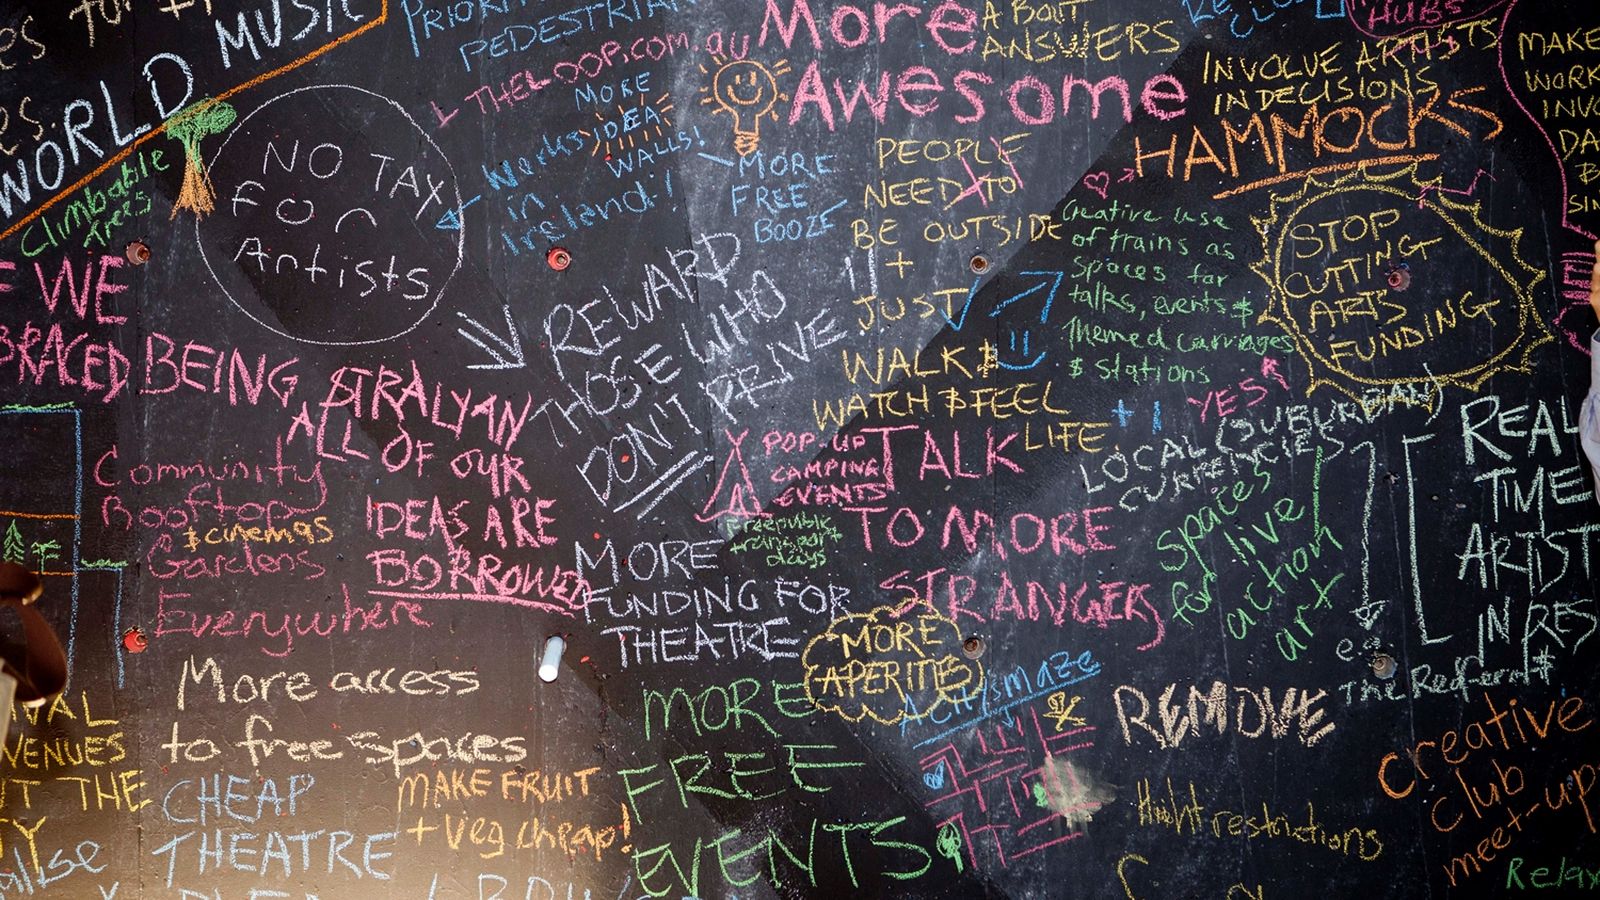 WORLD MUSIC
PEDESTRIAN
THELOOP.COM.au
More
Awesome
A BOUT
ANSWERS
INVOLVE ARTISTS
IN DECISIONS
HUBS
MAKE
WORK
HAMMOCKS
Climbable
trees
NO TAX
For
Artists
MORE
IDEA
WALLS!
Works
in
Ireland!
MORE
FREE
BOOZE
PEOPLE
NEED TO
BE OUTSIDE
+
JUST
WALK &
WATCH & FEEL
LIFE
Creative use
of trains as
spaces for
talks, events &
themed carriages
& stations
STOP
CUTTING
ARTS
FUNDING
REWARD
THOSE WHO
DON'T DRIVE
!!
WE
BRACED BEING
STRALYAN
ALL OF OUR
IDEAS ARE
BORROWED
Community
Rooftop
& cinemas
Gardens
Everywhere
POP-UP
CAMPING
EVENTS
TALK
TO MORE
STRANGERS
+1
YES
LOCAL (SUBURBAN)
CURRENCIES
e.g.
The Redfern $
spaces
for live
action
art
REAL
TIME
ARTIST
IN RES
free public
transport
days
MORE
FUNDING FOR
THEATRE
MORE
APERITIFS
More access
to free spaces
VENUES
THE
CHEAP
THEATRE
MAKE FRUIT
+ Veg cheap!
MORE
FREE
EVENTS
A City maze
REMOVE
Hight restrictions
creative
club
meet-up
Relax